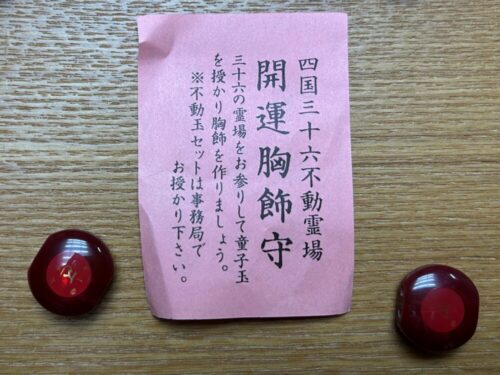 四国三十六不動霊場
開運胸飾守
三十六の霊場をお参りして童子玉
を授かり胸飾を作りましょう。
※不動玉セットは事務局で
お授かり下さい。